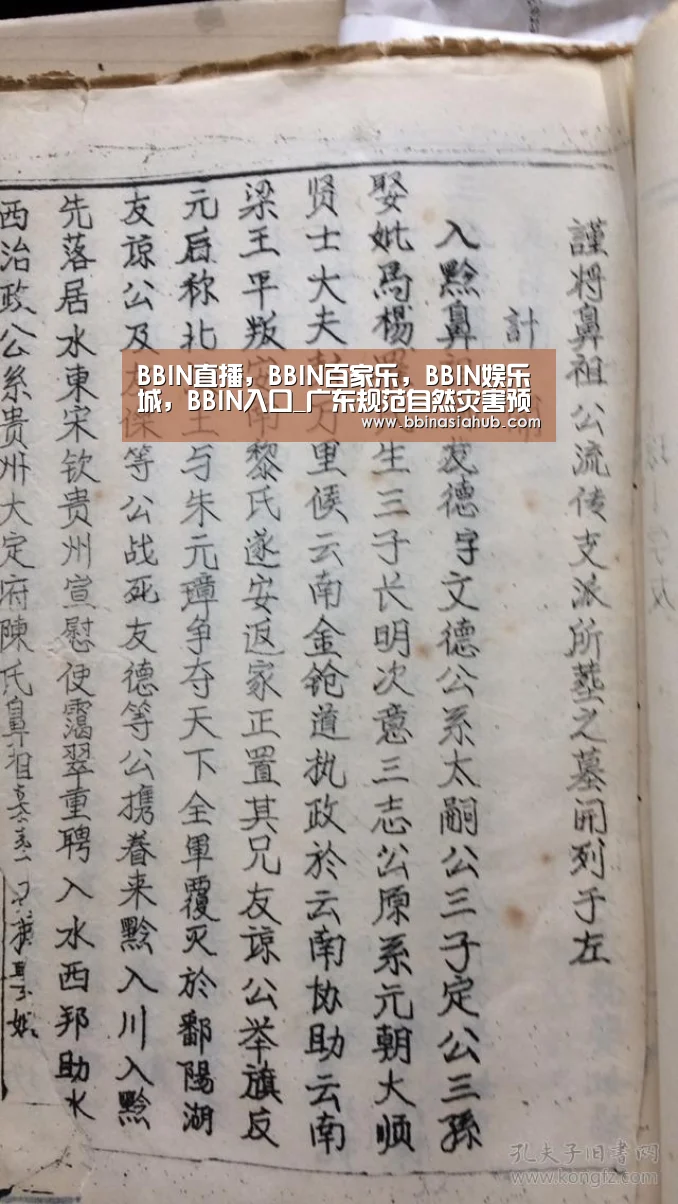 謹将鼻祖公流传支派所塟之墓開列于左
計
入黔鼻祖 友德字文德公系太嗣公三子定公三孫
娶妣馬楊 生三子长明次意三志公原系元朝大顺
贤士大夫 万里候云南金鎗道执政於云南协助云南
梁王平叛安 黎氏遂安返家正置其兄友谅公举旗反
元后称北 王与朱元璋争夺天下全軍覆灭於鄱陽湖
友谅公及友 等公战死友德等公携眷来黔入川入黔
先落居水東宋钦贵州宣慰使靄翠重聘入水西邦助水
西治政公系贵州大定府陳氏鼻祖
BBIN直播，BBIN百家乐，BBIN娱乐
城，BBIN入口_广东规范自然灾害预
www.bbinasiahub.com
孔夫子旧书网
www.kongfz.com